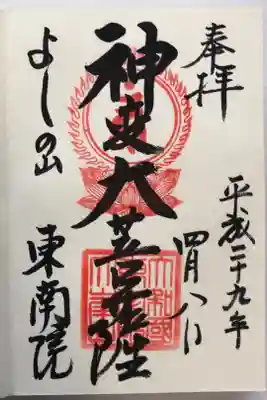 奉拝
平成二十九年
四月八日
神変大菩薩
よしの山
東南院